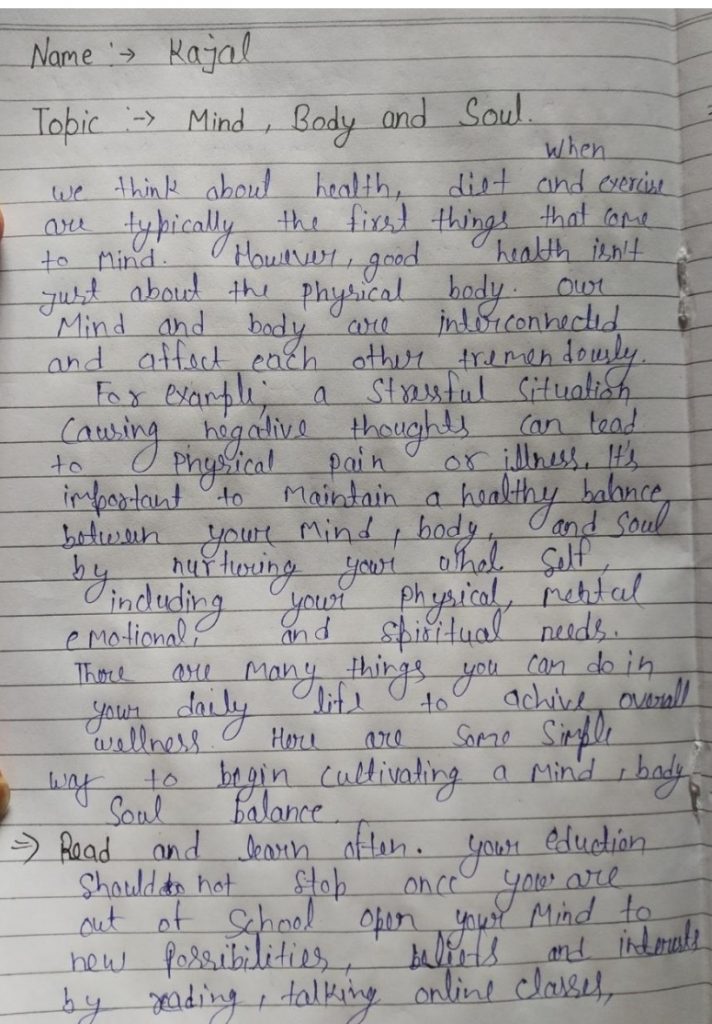 Name :→ Kajal
Topic :→ Mind, Body and Soul.
When
we think about health, diet and exercise
are typically the first things that come
to Mind. However, good health isn't
just about the physical body. our
Mind and body are interconnected
and affect each other tremendously.
For example, a stressful situation
causing negative thoughts can lead
to physical pain or illness. It's
important to maintain a healthy balance
between your mind, body, and soul
by nurturing your self,
including your physical, mental
emotional, and spiritual needs.
There are many things you can do in
your daily life to achive overall
wellness. Here are some simple
way to begin cultivating a mind, body
Soul balance.
⇒ Read and learn often. your eduction
should not stop once you are
out of school open your Mind to
new possibilities, beliefs and interests
by reading, talking online classes,